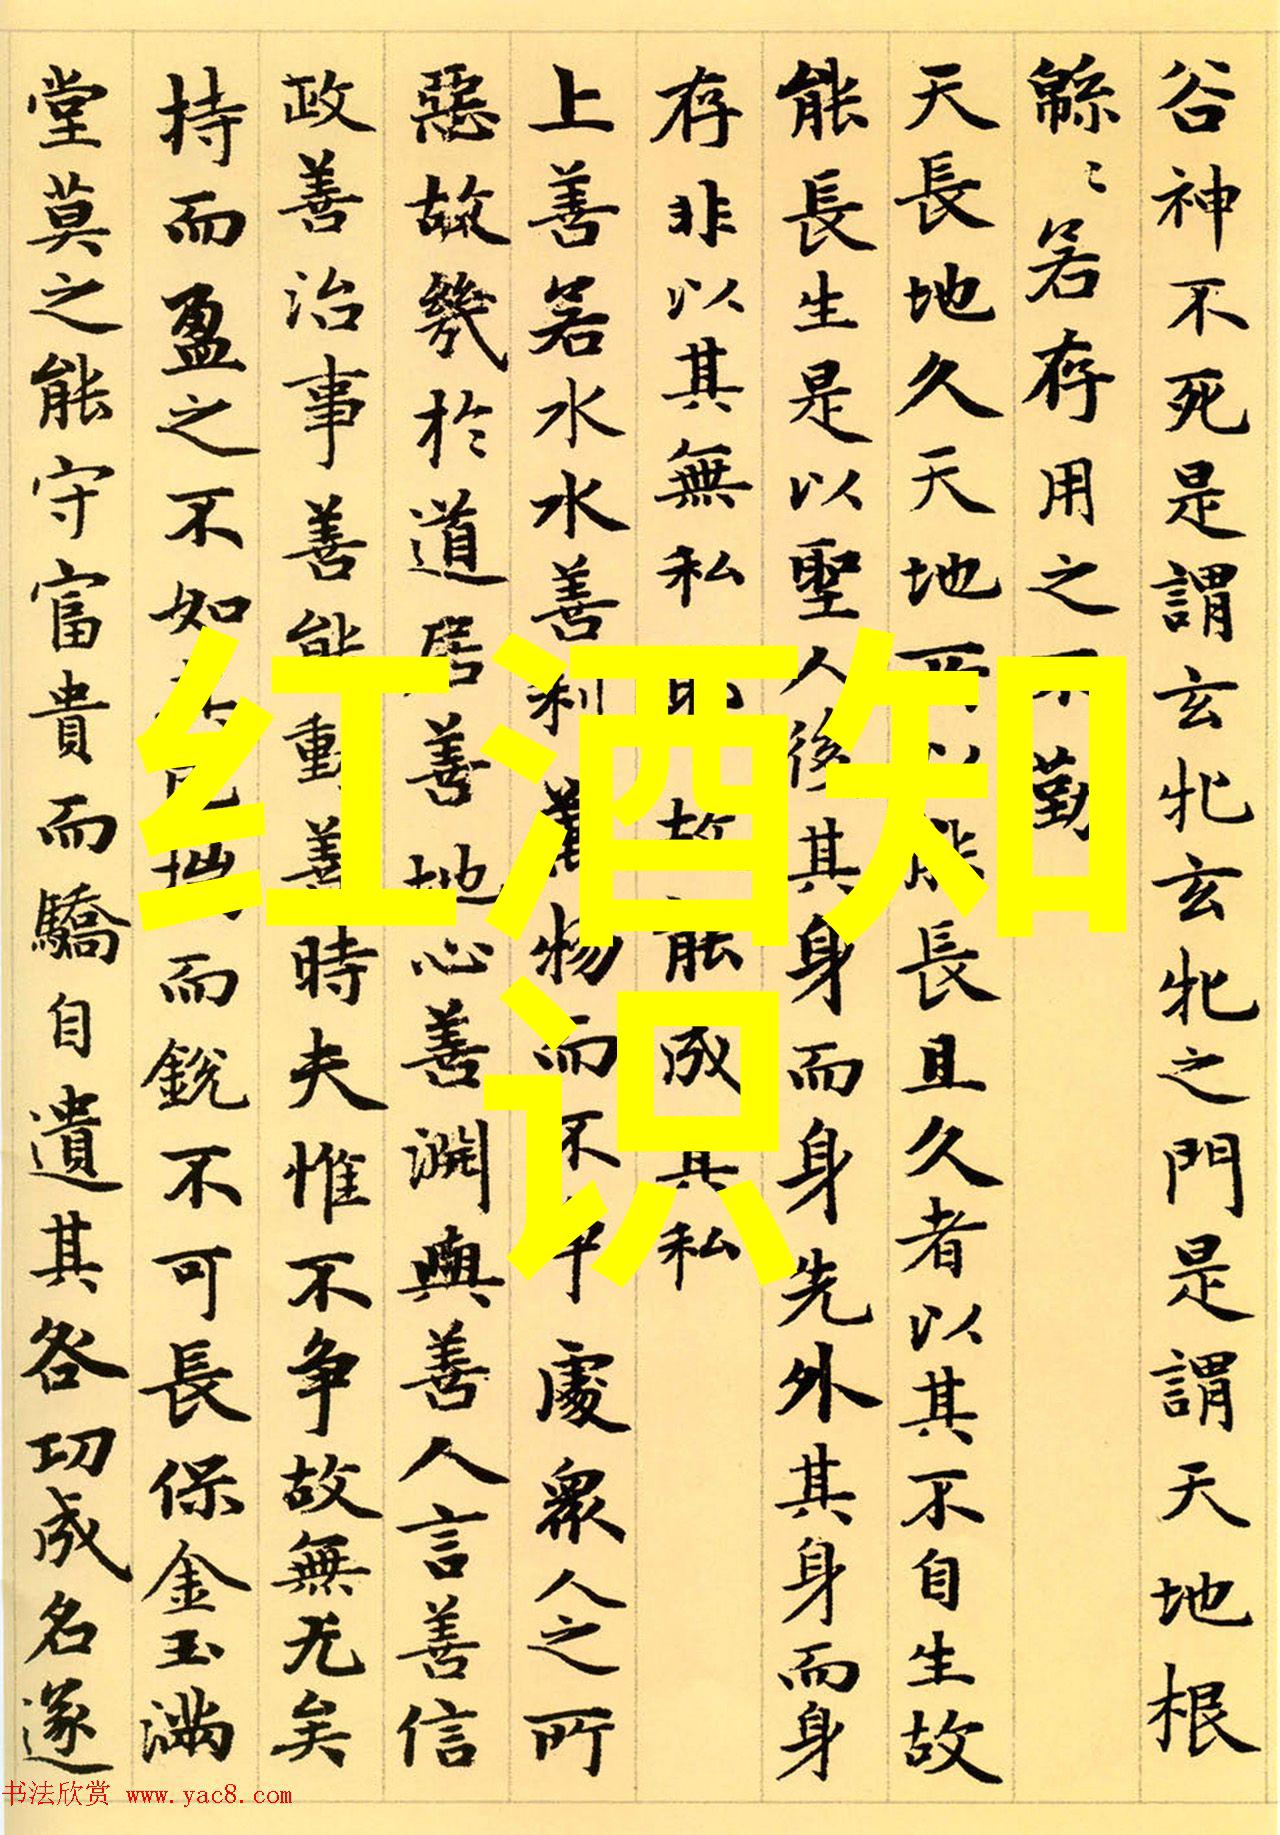 谷神不死是謂玄牝玄牝之門是謂天地根
緜〻若存用之不勤
天長地久天地所以能長且久者以其不自生故
能長生是以聖人後其身而身先外其身而身
存非以其無私故能成其私
上善若水水善利萬物而不争處衆人之所
惡故幾於道居善地心善淵與善人言善信
政善治事善能動善時夫惟不争故無尤矣
持而盈之不如而銳不可長保金玉滿
堂莫之能守富貴而驕自遺其咎功成名遂
红酒知
识
书法欣赏 www.yac8.com